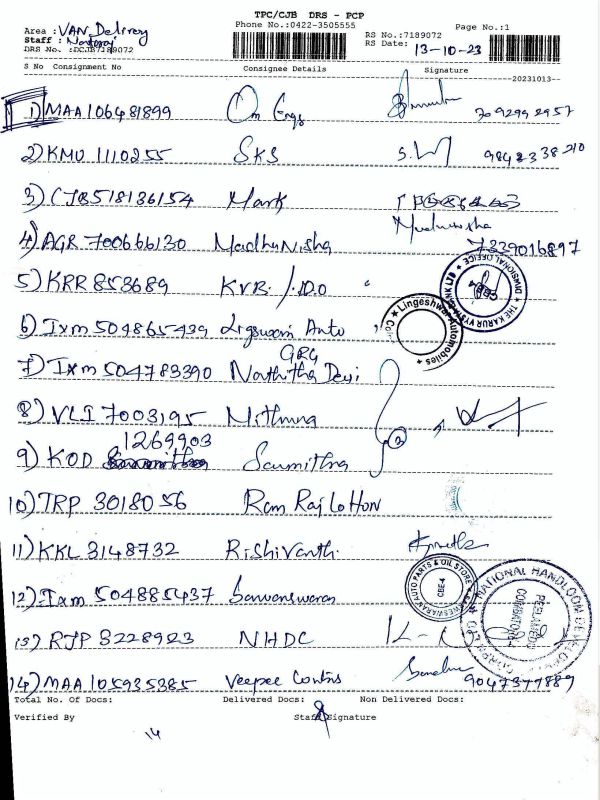 TPC/CJB DRS - PCP
Phone No.:0422-3505555
Page No.:1
Area : VAN Delivery
RS No.:7189072
Staff : Natraj
RS Date: 13-10-23
DRS No. :DCJB7189072
S No Consignment No Consignee Details Signature
20231013
1) MAA 106481899 Om Engg
2) KMU 1110255 SKS S.
3) CJB 518136154 Mark
4) AGR 700666130 Madhu Nisha 7339016897
5) KRR 853689 KVB / .DO
DIVISIONAL OFFICE ★ THE KARUR VYSYA BANK LTD ★
CBE-4
6) Ixm 504865439 Auto
Lingeshwar Automobiles ★
GRG
7) Ixm 504783390 Devi
8) VLI 7003195 Mithuna
1269903
9) KOD Soumithra
10) TRP 3018056 Ram Raj Cotton
11) KKL 3148732 Rishivanth.
12) Ixm 504885437 Sarwaneswaran
AUTO PARTS & OIL STORE
CBE-4
13) RJP 3228923 NHDC
NATIONAL HANDLOOM
14) MAA 105935385 Veepee 9047377889
Total No. Of Docs: Delivered Docs: Non Delivered Docs:
Verified By Staff Signature
14